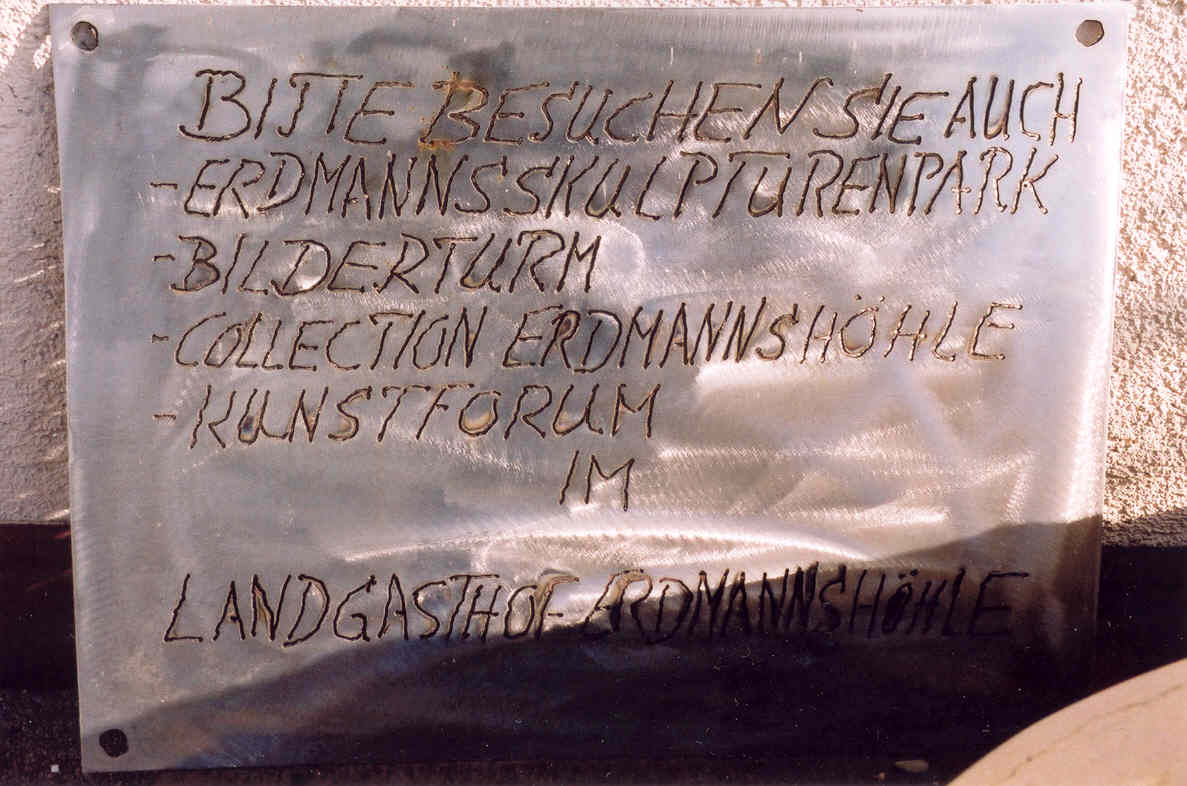 BITTE BESUCHEN SIE AUCH
-ERDMANNSSKULPTURENPARK
-BILDERTURM
-COLLECTION ERDMANNSHÖHLE
-KUNSTFORUM
IM
LANDGASTHOF ERDMANNSHÖHLE